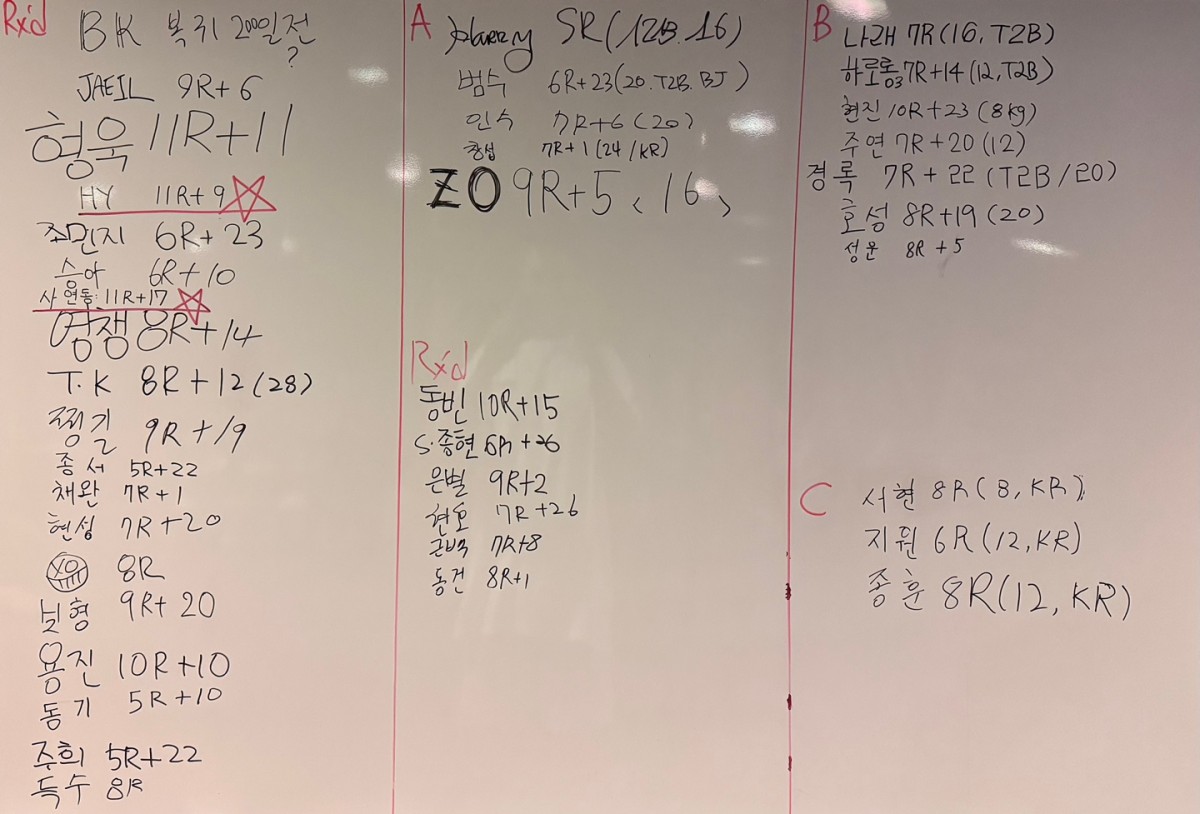 Rx'd
BK 복귀 2000일전?
JAEIL 9R+6
형욱 11R+11
HY 11R+9
조민지 6R+23
승아 6R+10
사 연동: 11R+17
영쟁 8R+14
T.K 8R+12(28)
찡길 9R+19
종서 5R+22
채완 7R+1
현성 7R+20
8R
보형 9R+20
용진 10R+10
동기 5R+10
주희 5R+22
득수 8R
A
Harry 5R(12B.16)
범수 6R+23(20.T2B.BJ)
인수 7R+6(20)
창섭 7R+1(24/KR)
ZO 9R+5 (16)
Rx'd
동빈 10R+15
S.종현 6R+26
은별 9R+2
7R+26
근백 7R+8
동건 8R+1
B
나래 7R(16, T2B)
하로롱3 7R+14(12,T2B)
현진 10R+23(8kg)
주연 7R+20(12)
경록 7R+22(T2B/20)
호성 8R+19(20)
성운 8R+5
C
서현 8R(8,KR)
지원 6R(12,KR)
종훈 8R(12,KR)